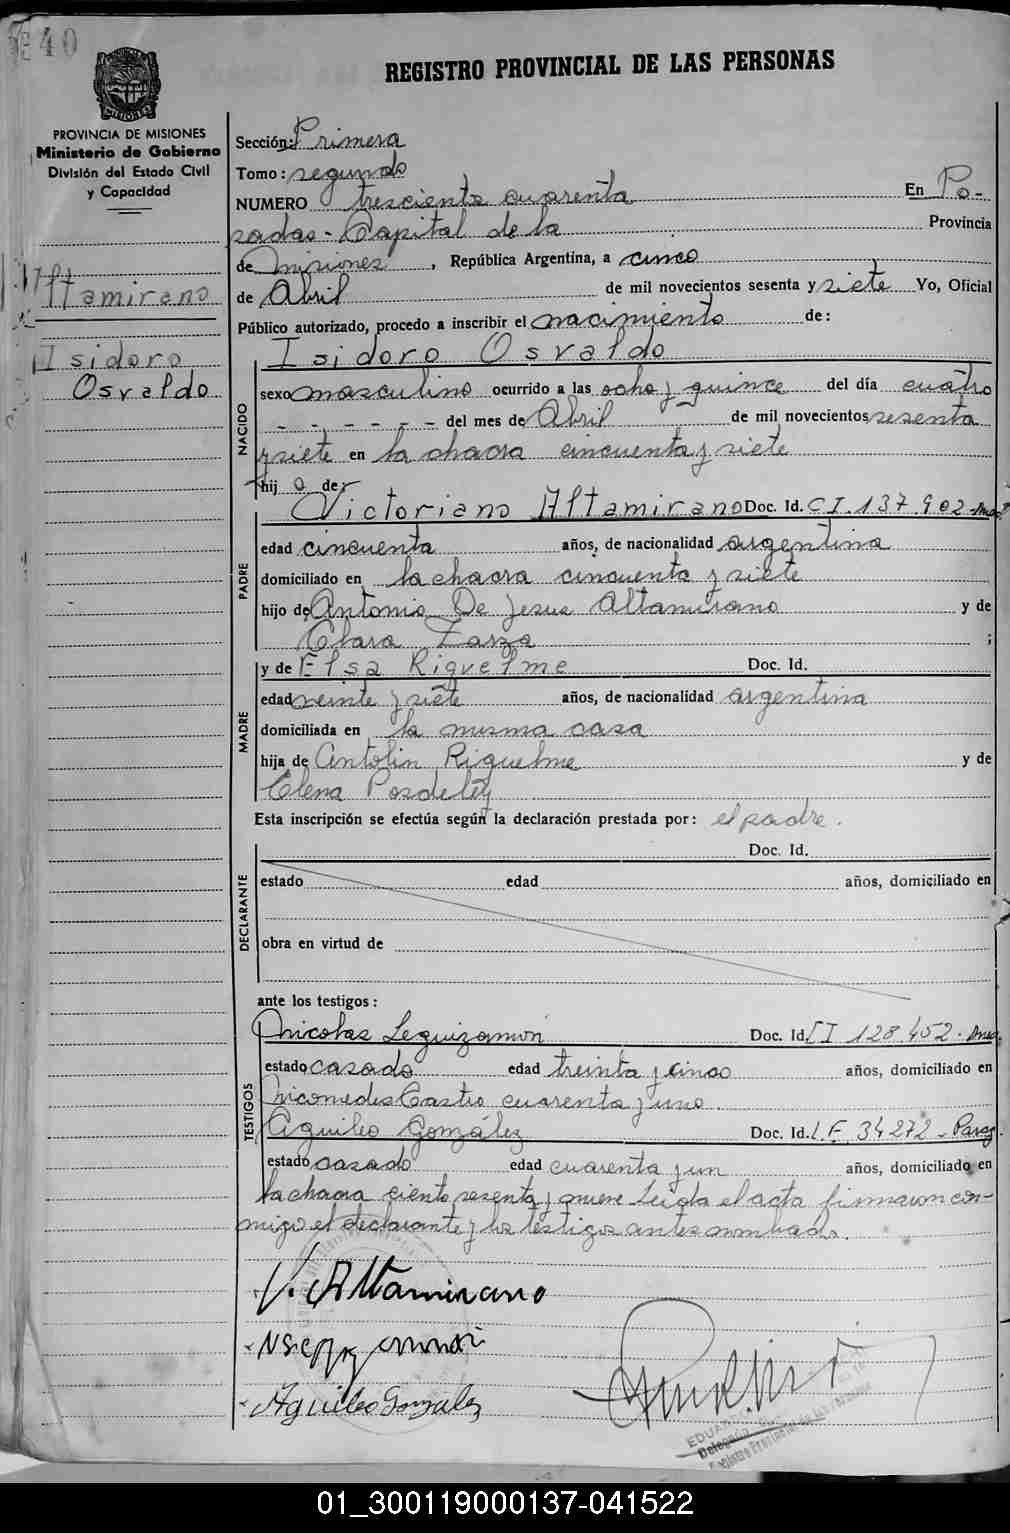 340
REGISTRO PROVINCIAL DE LAS PERSONAS
PROVINCIA DE MISIONES
Ministerio de Gobierno
División del Estado Civil
y Capacidad
Altamirano
Isidoro
Osvaldo
Sección: Primera
Tomo: segundo
NUMERO trescienta cuarenta En Po-
sadas - Capital de la Provincia
de Misiones, República Argentina, a cinco
de Abril de mil novecientos sesenta y siete Yo, Oficial
Público autorizado, procedo a inscribir el nacimiento de:
Isidoro Osvaldo
NACIDO
sexo masculino ocurrido a las ocho y quince del día cuatro
- - - - - - del mes de Abril de mil novecientos sesenta
y siete en la chacra cincuenta y siete
hij o de:
Victoriano Altamirano Doc. Id. CI. 137.902
PADRE
edad cincuenta años, de nacionalidad argentina
domiciliado en la chacra cincuenta y siete
hijo de Antonio De Jesus Altamirano y de
Clara Zarza ;
y de Elsa Riquelme Doc. Id.
MADRE
edad veinte y siete años, de nacionalidad argentina
domiciliada en la misma casa
hija de Antolin Riquelme y de
Elena Posdeley
Esta inscripción se efectúa según la declaración prestada por: el padre.
Doc. Id.
DECLARANTE
estado edad años, domiciliado en
obra en virtud de
ante los testigos:
Nicolas Leguizamón Doc. Id. CI 128.452
TESTIGOS
estado casado edad treinta y cinco años, domiciliado en
Nicomedes Castro cuarenta y uno.
Aguileo González Doc. Id. L.E. 34272 - Parag.
estado casado edad cuarenta y un años, domiciliado en
la chacra ciento sesenta y nueve Leida el acta firmaron con-
migo el declarante y los testigos antes nombrado.
V. Altamirano
Aguileo Gonzalez
EDUARDO
Delegado
Registro Provincial de las Personas
01_300119000137-041522